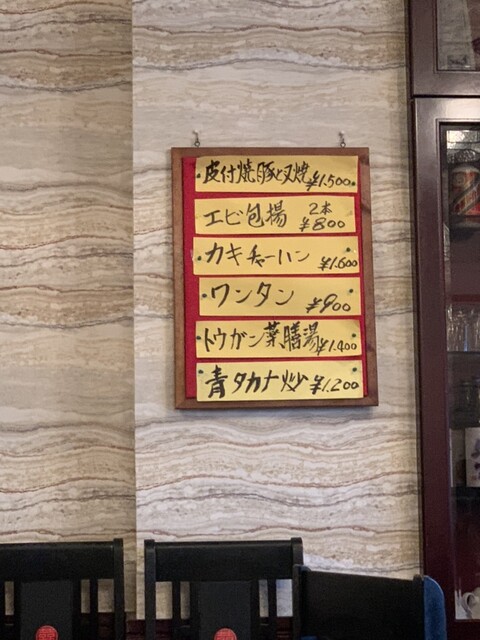 皮付焼豚と叉焼 ¥1.500
エビ包揚 2本 ¥800
カキチャーハン ¥1.600
ワンタン ¥900
トウガン薬膳湯 ¥1.400
青タカナ炒 ¥1.200